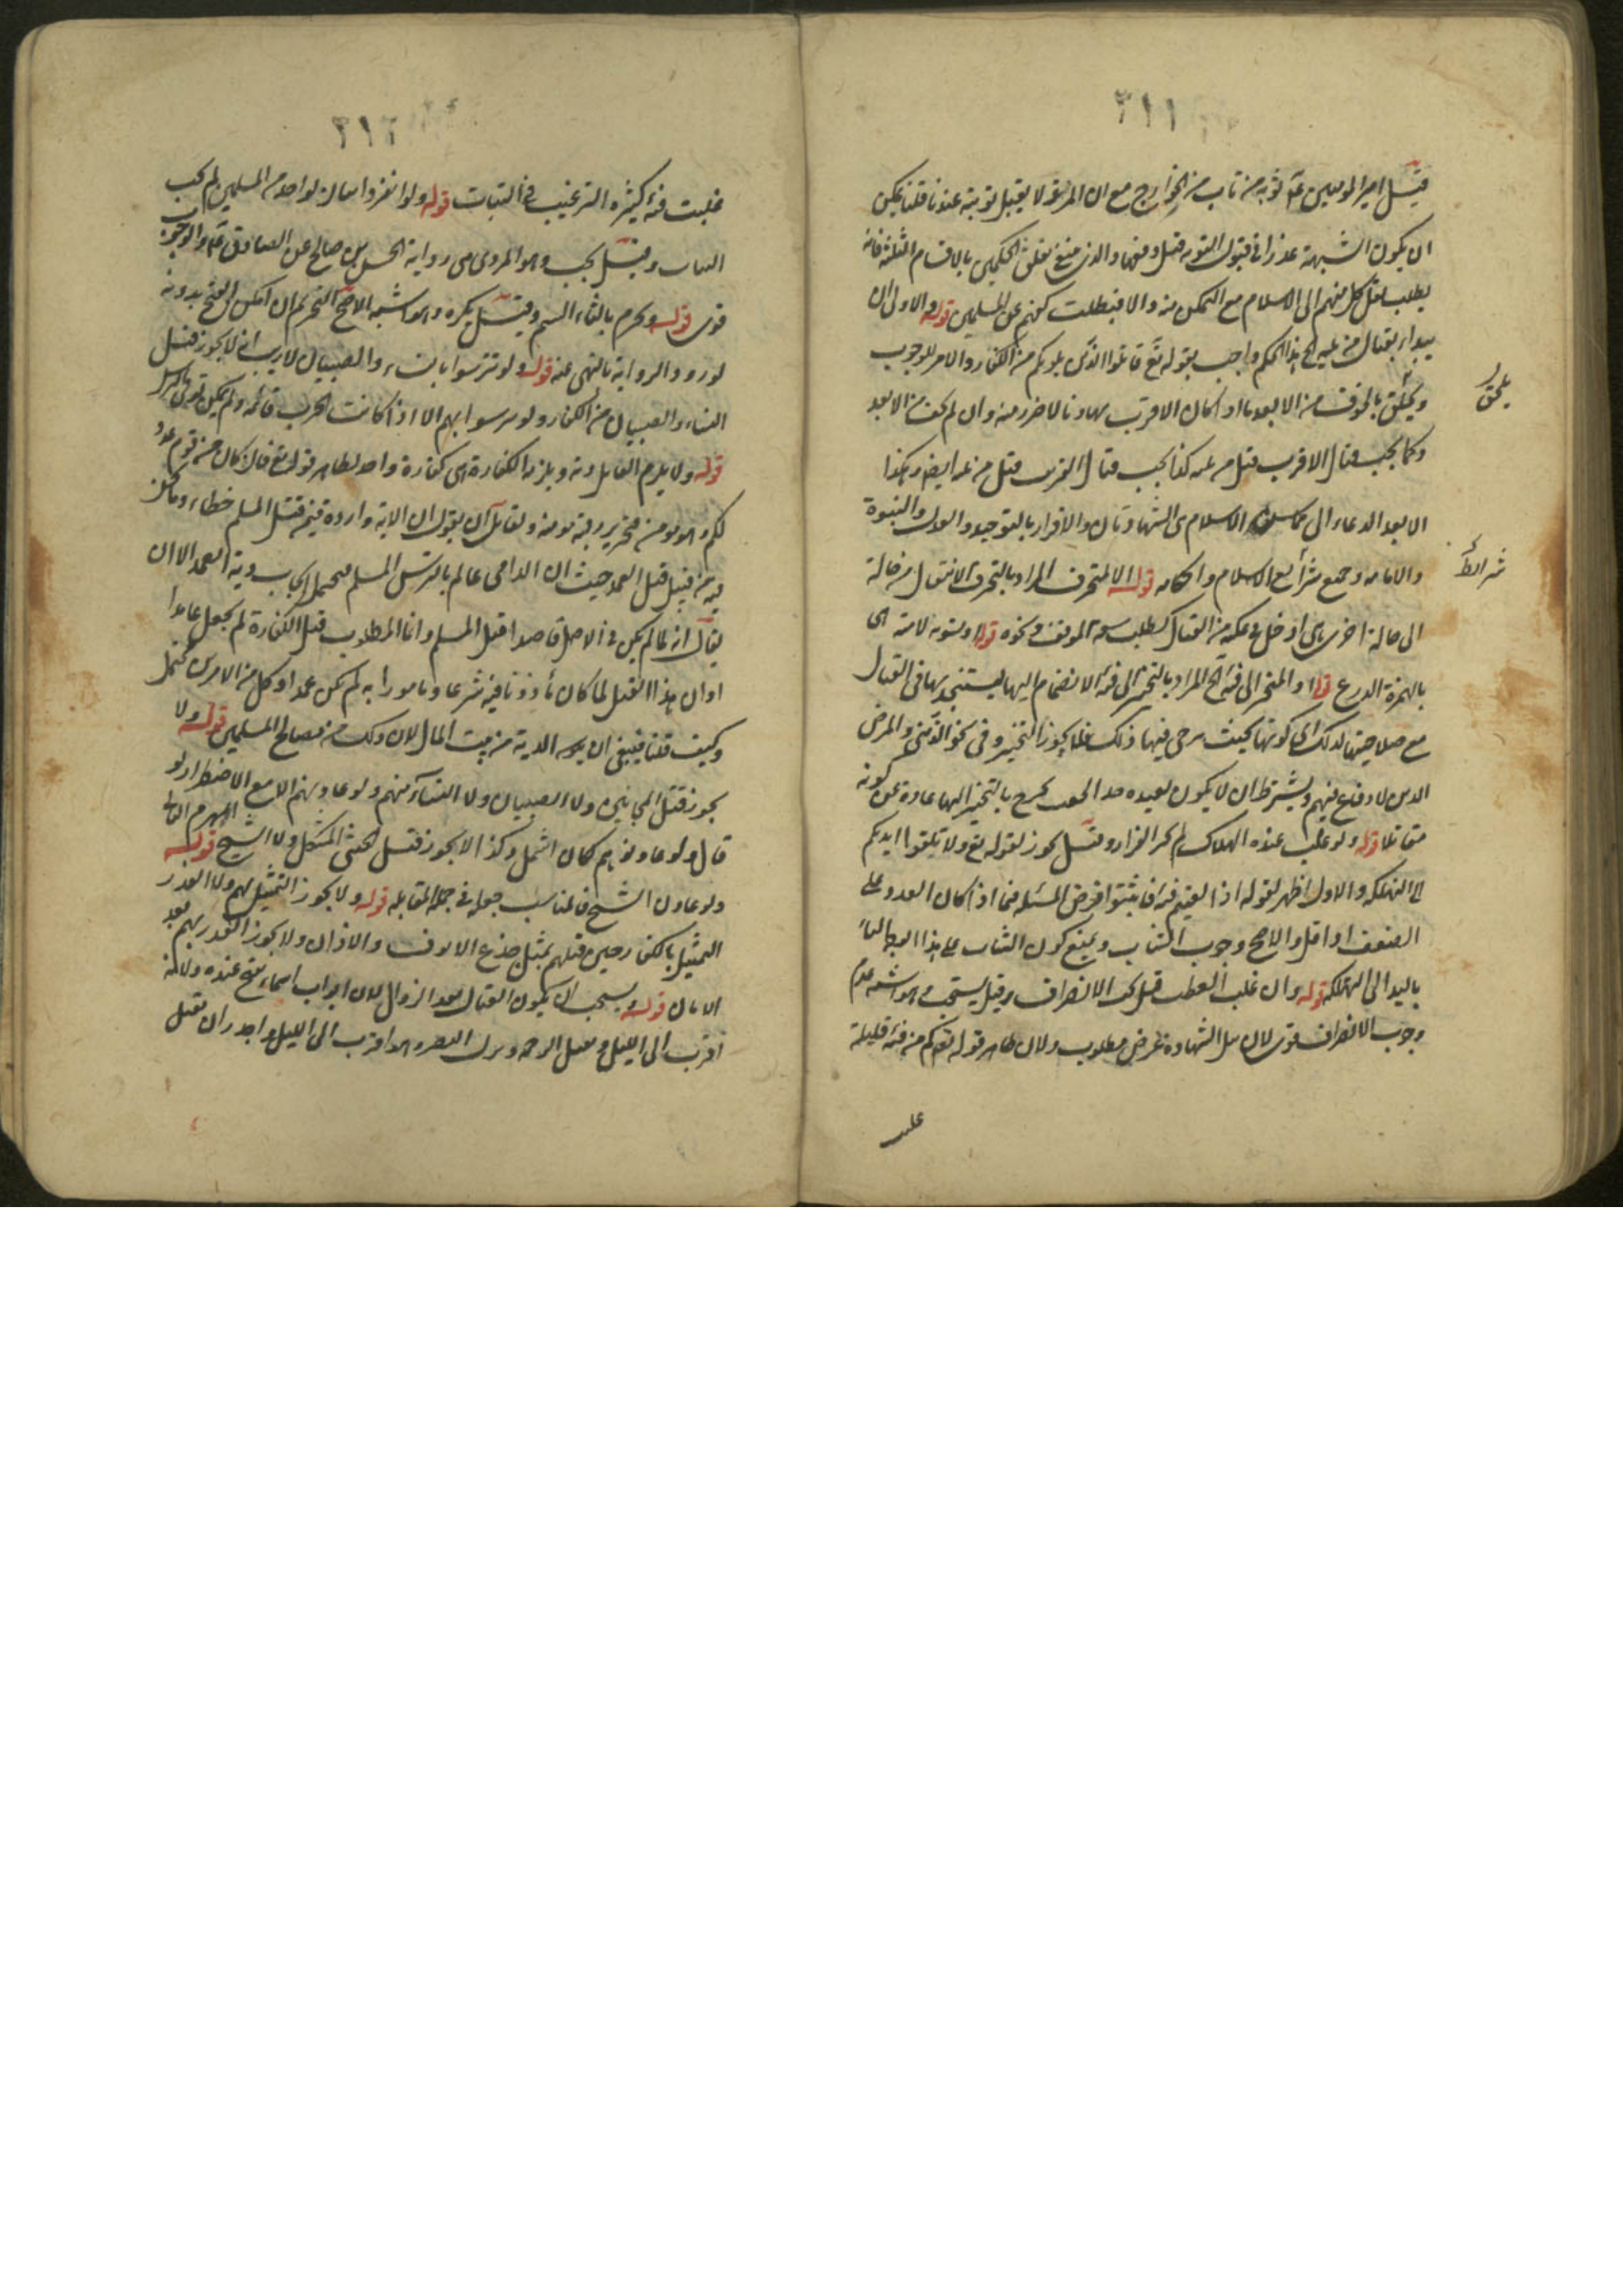 ٣١١
قيل امير المومنين عم توبة من تاب من الخوارج مع ان المرتد لا يقبل توبته عندنا قلنا يمكن
ان يكون الشبهة عذرا في قبول التوبة قبل وفيهما والذي ينبغي تعلق الحكمين بالاقسام الثلثة فانه
يطلب من كل منهم الى الاسلام مع التمكن منه والا فيطلب كفهم عن المسلمين قوله والاولى ان
يبداء بقتال من يليه الخ هذا الحكم واجب بقوله تع قاتلوا الذين يلونكم من الكفار والامر للوجوب
ويلحق بالخوف من الابعد ما اذا كان الاقرب مهادنا لا ضرر منه وان لم يخف من الابعد
وكما يجب قتال الاقرب قبل غيره كذا يجب قتال القريب قبل من غيره ايضا وهكذا
الابعد الدعاء الى محاسن الاسلام هي الشهادتان والاقرار بالتوحيد والعدل والنبوة
والامامة وجميع شرائع الاسلام واحكامه قوله الا لمتحرف المراد بالتحرف الانتقال من حالة
الى حالة اخرى هي ادخل في تمكينه من القتال كطلب سعة الموقف ونحوه قوله او تسوية لامته هي
بالهمزة الدرع قوله او لمتحيز الى فئة الخ المراد بالتحيز الى فئة الانضمام اليها ليستنجد بها في القتال
مع صلاحيتها لذلك اي كونها بحيث يرجى فيها ذلك فلا يجوز التحيز وفي نحو الزمنى والمرضى
الذين لا دفاع فيهم ويشترط ان لا يكون بعيده حدا بحيث يخرج بالتحيز اليها عادة عن كونه
مقاتلا قوله ولو غلب عنده الهلاك لم يجز الفرار وقيل يجوز لقوله تع ولا تلقوا بايديكم
الى التهلكة والاول اظهر لقوله اذا لقيتم فئة فاثبتوا فرض المسئلة فيما اذا كان العدو على
الضعف او اقل والاصح وجوب الثبات ويمنع كون الثبات على هذا الوجه القاء
باليد الى التهلكة قوله وان غلب العطب قيل يجب الانصراف وقيل يستحب وهو اشبه عدم
وجوب الانصراف قوي لان نيل الشهادة غرض مطلوب ولان ظاهر قوله تع كم من فئة قليلة
يلحق
شرائط
غلبت
٣١٢
غلبت فئة كثيرة الترغيب في الثبات قوله ولو انفرد اثنان بواحد من المسلمين لم يجب
الثبات وقيل يجب وهو المروي في رواية الحسن بن صالح عن الصادق عم والوجوب
قوي قوله ويحرم بالقاء السم وقيل يكره وهو اشبه الاصح التحريم ان امكن الفتح بدونه
لورود الرواية بالنهي عنه قوله ولو تترسوا بالنساء والصبيان لا ريب انه لا يجوز قتل
النساء والصبيان من الكفار ولو تترسوا بهم الا اذا كانت الحرب قائمة ولم يمكن
قوله ولا يلزم القاتل دية ويلزمه الكفارة هي كفارة واحد لظاهر قوله تع فان كان من قوم عدو
لكم وهو مومن فتحرير رقبة مومنة ولقائل ان يقول ان الاية واردة فيمن قتل المسلم خطاء وما نحن
فيه من قبيل قتل العمد حيث ان الرامي عالم بالترس المسلم فيحمل ايجاب دية العمد الا ان
يقال انه لما لم يكن في الاصل قاصدا قتل المسلم وانما المطلوب قتل الكفارة لم يجعل عامدا
او ان هذا القتل لما كان ماذونا فيه شرعا ومامورا به لم يكن عمدا وكل من الامرين محتمل
وكيف قلنا فينبغي ان يكون الدية من بيت المال لان ذلك من مصالح المسلمين قوله ولا
يجوز قتل المجانين ولا الصبيان ولا النساء منهم ولو عاونهم الا مع الاضطرار لو
قال ولو عاونوهم كان اشمل وكذا لا يجوز قتل الخنثى المشكل ولا الشيخ الهرم الفاني قوله
ولو عاون الشيخ فالمناسب جعله في جملة المقابلة قوله ولا يجوز التمثيل بهم ولا الغدر
التمثيل بالكفار حين قتلهم بمثل جدع الانوف والاذان ولا يجوز الغدر بهم بعد
الامان قوله ويستحب ان يكون القتال بعد الزوال لان ابواب السماء يفتح عنده ولانه
اقرب الى الليل وتقبل الرحمة وينزل النصر وهو اقرب الى الليل واجدر ان يقتل